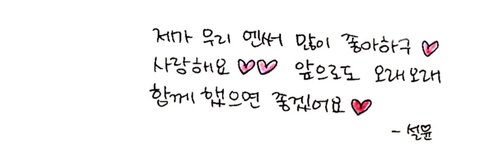 제가 우리 엔써 많이 좋아하구 ♥
사랑해요 ♥♥ 앞으로도 오래오래
함께 했으면 좋겠어요 ♥
- 설윤